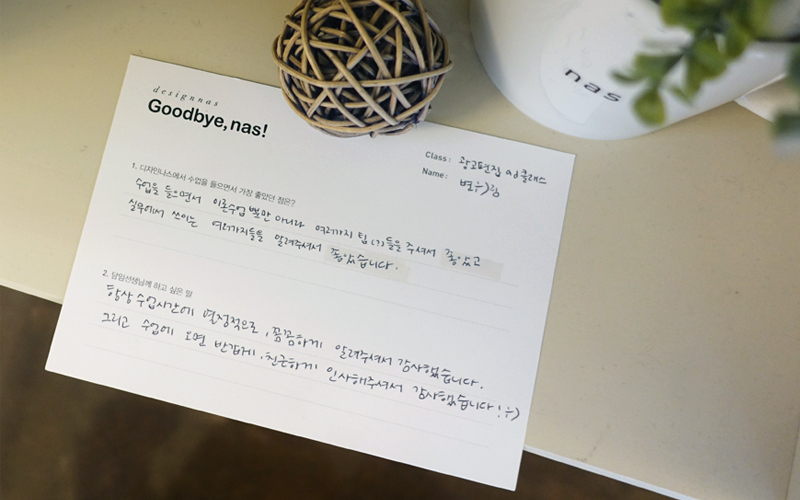 designnas
Goodbye, nas!
Class : 광고편집 ad클래스
Name :
1. 디자인나스에서 수업을 들으면서 가장 좋았던 점은?
수업을 들으면서 이론수업 뿐만 아니라 여러가지 팁(?)들을 주셔서 좋았고
실무에서 쓰이는 여러가지들을 알려주셔서 좋았습니다.
2. 담임선생님께 하고 싶은 말
항상 수업시간에 열정적으로, 꼼꼼하게 알려주셔서 감사했습니다.
그리고 수업에 오면 반갑게, 친근하게 인사해주셔서 감사했습니다! :)
nas